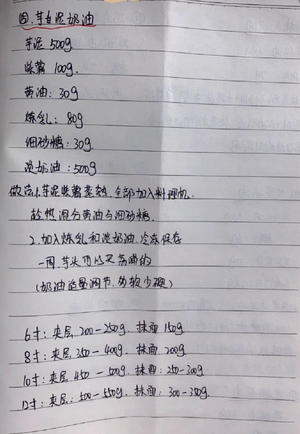 四.芋泥奶油
芋泥500g
紫薯100g.
黄油:30g
炼乳:80g
细砂糖:30g
淡奶油:500g
做法1.芋泥紫薯蒸熟,全部加入料理机
趁热混合黄油与细砂糖.
2.加入炼乳和淡奶油.冷冻保存
一周,芋头可以买荔浦的
(奶油适量调节.勿软少硬)
6寸:夹层200-250g.抹面150g
8寸:夹层350-400g.抹面200g
10寸:夹层450-500g.抹面:250-300g
12寸:夹层:500-550g.抹面:300-350g.